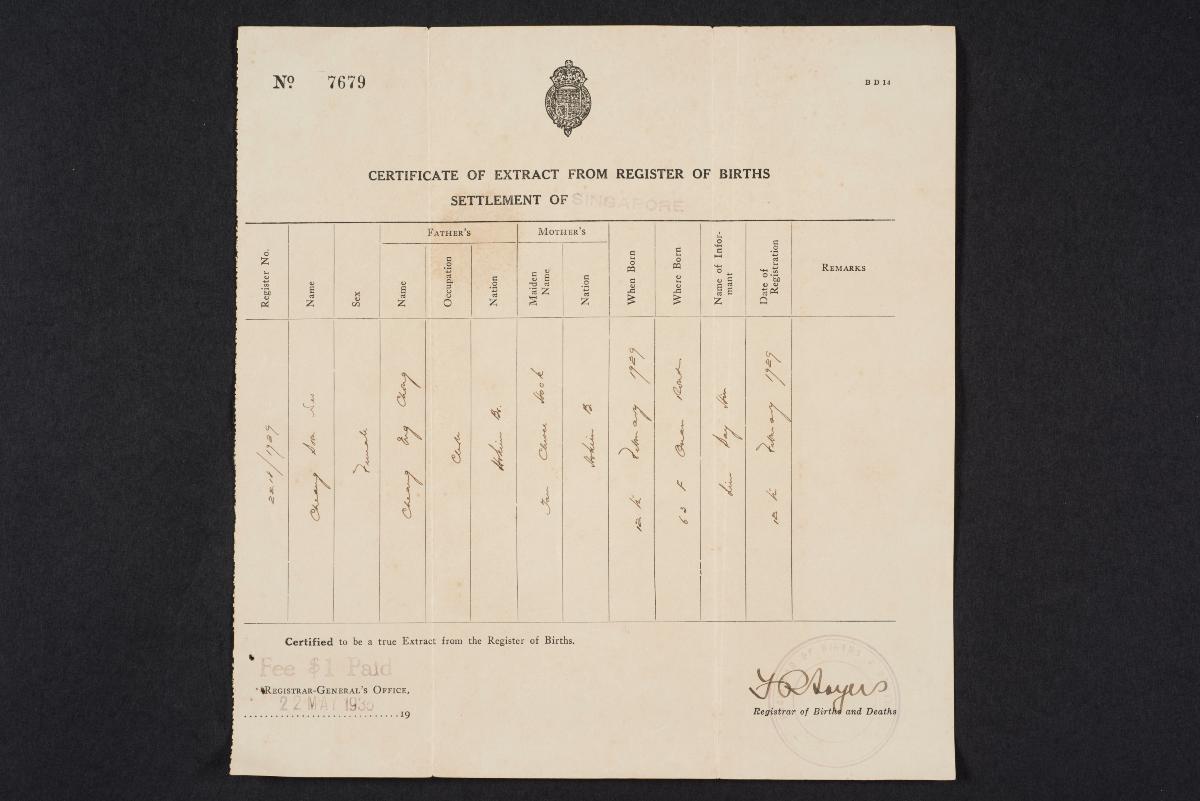 Nº 7679
B D 14
CERTIFICATE OF EXTRACT FROM REGISTER OF BIRTHS
SETTLEMENT OF SINGAPORE
Register No.
Name
Sex
FATHER'S
Name
Occupation
Nation
MOTHER'S
Maiden Name
Nation
When Born
Where Born
Name of Infor-
mant
Date of
Registration
REMARKS
2214/1929
Cheang
Female
Cheang Eng Chong
Clerk
Hokien B.
Tan Chwee Hook
Hokien B.
12th February 1929
63 F Onan Road
Lim Say
12th February 1929
Certified to be a true Extract from the Register of Births.
Fee $1 Paid
REGISTRAR-GENERAL'S OFFICE,
22 MAY 1935
19
Registrar of Births and Deaths